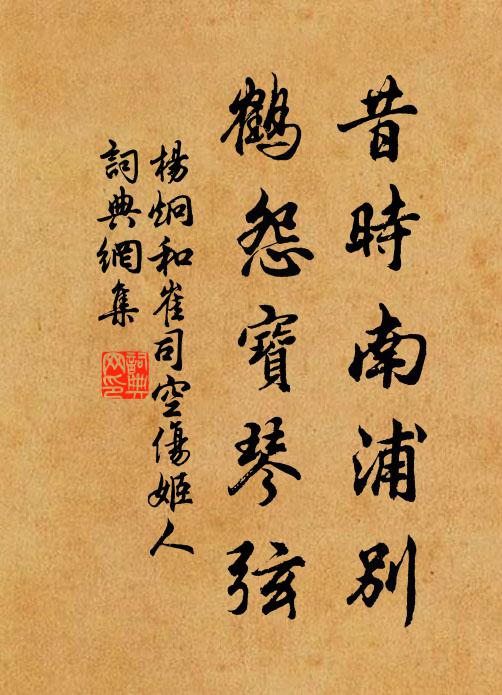 昔時南浦別
鶴怨寶琴弦
楊炯和崔司空傷姬人
詞典網集
詞典網印